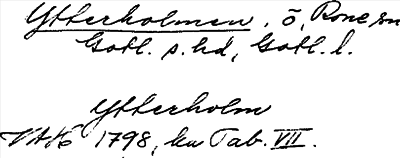 Ytterholmen, ö, Rone sn
Gotl. s. hd, Gotl. l.
Ytterholm
VAH 1798, ku Tab. VII.